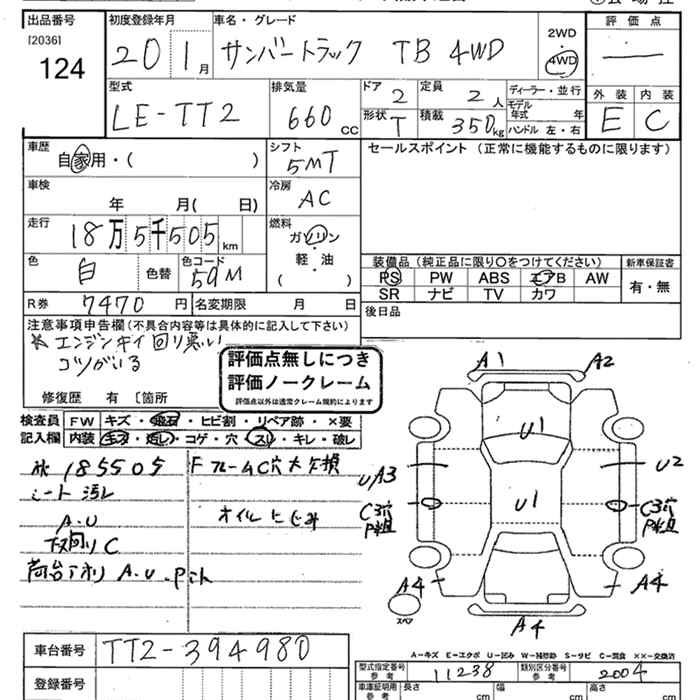 出品番号 初度登録年月 車名・グレード 2WD・4WD 評価点
[2036]
124 20 1月 サンバートラック TB 4WD
型式 排気量 ドア 定員 ディーラー・並行 外装 内装
LE-TT2 660cc 2 2人 モデル年式 年 E C
形状 積載 ハンドル 左・右
T 350kg
車歴 シフト セールスポイント (正常に機能するものに限ります)
自家用・( ) 5MT
車検 冷房
年 月( 日) AC
走行 燃料
18万5千505km ガソリン・軽・油( )
色 色替 色コード 装備品 (純正品に限り○をつけてください) 新車保証書
白 59M PS PW ABS エアB AW 有・無
SR ナビ TV カワ
R券 7470円 名変期限 月 日 後日品
注意事項申告欄(不具合内容等は具体的に記入して下さい)
エンジンキイ回り悪い
コツがいる
評価点無しにつき
評価ノークレーム
評価点以外は通常クレーム規約によります
修復歴 有 〔箇所
検査員 FW キズ・飛石・ヒビ割・リペア跡・×要
記入欄 内装 キズ・汚レ・コゲ・穴・スレ・キレ・破レ
185505 Fフレーム穴大欠損
シート汚レ
オイルにじみ
A.U
下回りC
荷台アオリ A.U.P
A1 A2
U1
UA3 U2
U1
C3穴 C3穴
A4 A4
スペア
A4
A-キズ E-エクボ U-凹み W-補修跡 S-サビ C-腐食 ××-交換済
車台番号 TT2-394980
型式指定番号 参考 11238 類別区分番号 参考 2004
登録番号
車庫証明用 参考 長さ cm 幅 cm 高さ cm